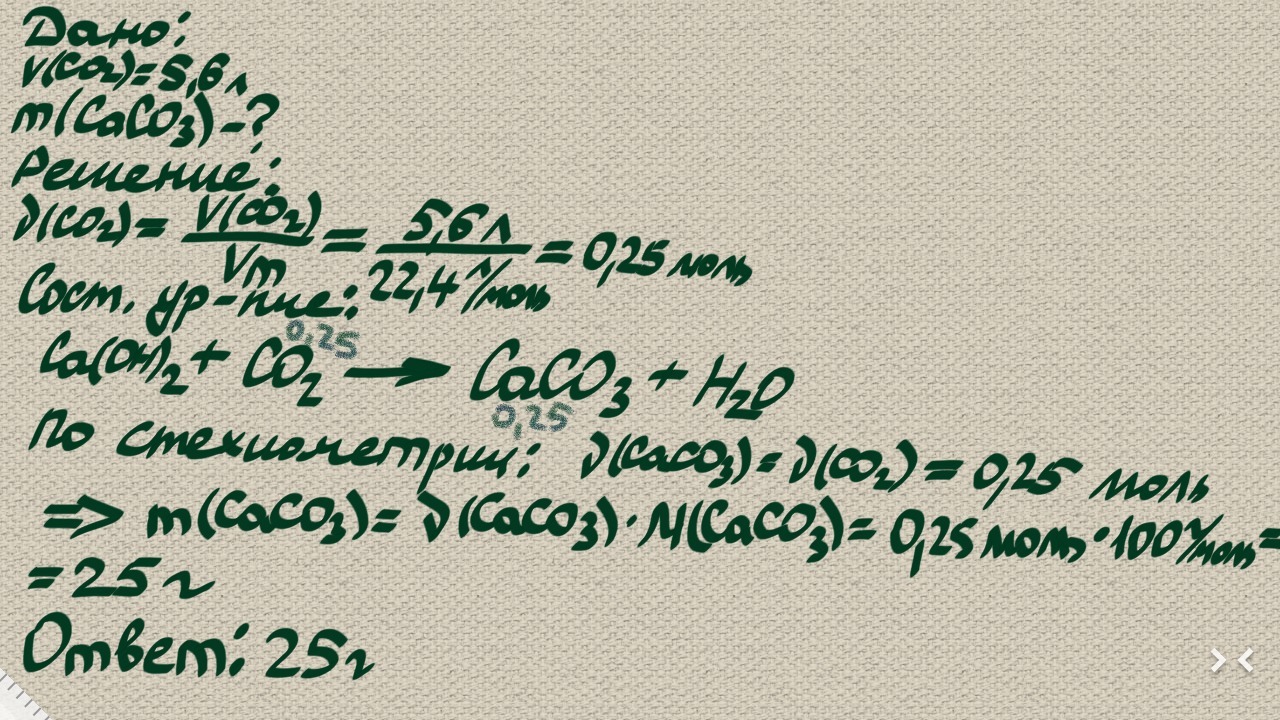 Дано:
V(CO₂)=5,6 л
m(CaCO₃)-?
Решение:
ν(CO₂) = V(CO₂)/Vm = 5,6 л/22,4 л/моль = 0,25 моль
Сост. ур-ние:
0,25
Ca(OH)₂ + CO₂ → CaCO₃ + H₂O
0,25
По стехиометрии: ν(CaCO₃) = ν(CO₂) = 0,25 моль
=> m(CaCO₃) = ν(CaCO₃)·M(CaCO₃) = 0,25 моль·100 г/моль =
= 25 г
Ответ: 25 г